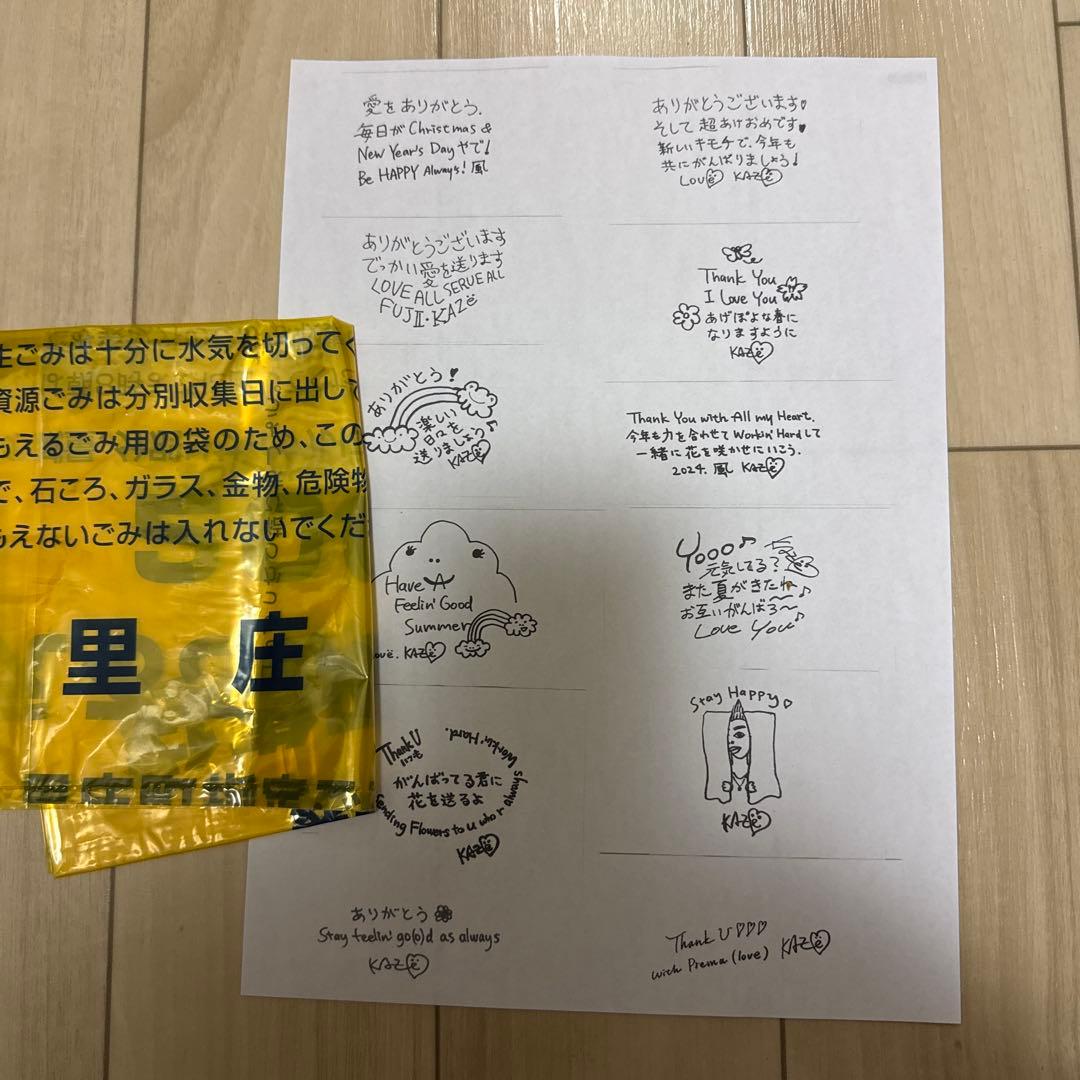 愛をありがとう.
毎日がChristmas &
New Year's Dayやで!
Be HAPPY Always! 風
ありがとうございます
そして超あけおめです
新しいキモチで、今年も
共にがんばりましょう!
LOVE KAZE
ありがとうございます
でっかい愛を送ります
LOVE ALL SERVE ALL
FUJII・KAZE
Thank You
I Love You
あげぽよな春に
なりますように
KAZE
ありがとう!
楽しい
日々を
送りましょう
KAZE
Thank You with All my Heart.
今年も力を合わせてWorkin' Hardして
一緒に花を咲かせにいこう.
2024. 風 KAZE
Have A
Feelin' Good
Summer
Love. KAZE
Yooo♪
元気してる?
また夏がきたね
お互いがんばろ〜
Love You♪
Thank U
いつも
がんばってる君に
花を送るよ
Sending Flowers to U who r always
Workin' Hard.
KAZE
Stay Happy
KAZE
ありがとう
Stay feelin' go(o)d as always
KAZE
Thank U♡♡♡
with Prema (love) KAZE
生ごみは十分に水気を切ってく
資源ごみは分別収集日に出して
もえるごみ用の袋のため、この
で、石ころ、ガラス、金物、危険物
もえないごみは入れないでくだ
里 庄